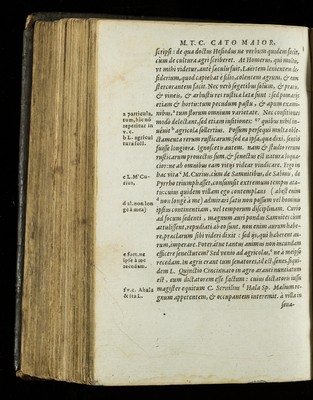 M. T. C. CATO MAIOR,
scripsi: de qua doctus Hesiodus ne verbum quidem fecit,
cum de cultura agri scriberet. At Homerus, qui multis,
vt mihi videtur, ante sæculis fuit, Laërtem lenientem de-
siderium, quod capiebat è filio, colentem agrum, & eum
stercorantem facit. Nec verò segetibus solùm, & pratis,
& vineis, & arbustis res rustica læta sunt: sed pomariis
etiam & hortis: tum pecudum pastu, & apum exami-
nibus, tum florum omnium varietate. Nec consitiones
modò delectant, sed etiam insitiones: quibus nihil in-
uenit agricola sollertius. Possum persequi multa oble-
ctamenta rerum rusticarum: sed ea ipsa, quæ dixi, sensi
fuisse longiora. Ignoscetis autem. nam & studio rerum
rusticarum prouectus sum, & senectus est natura loqua-
cior: ne ab omnibus eam vitiis videar vindicare. Ergo in
hac vita M. Curius, cùm de Samnitibus, de Sabinis, de
Pyrrho triumphasset, consumsit extremum tempus æta-
tis: cuius quidem villam ego contemplans (abest enim
non longè à me) admirari satis non possum vel hominis
ipsius continentiam, vel temporum disciplinam. Curio
ad focum sedenti, magnum auri pondus Samnites cùm
attulissent, repudiati ab eo sunt. non enim aurum habe-
re, præclarum sibi videri dixit: sed iis, qui haberent au-
rum, imperare. Poterátne tantus animus non iucundam
efficere senectutem? Sed venio ad agricolas, ne à meipso
recedam. in agris erant tum senatores, id est, senes. siqui-
dem L. Quinctio Cincinnato in agro aranti nuntiatum
est, eum dictatorem esse factum: cuius dictatoris iussu
magister equitum C. Seruilius Hala Sp. Mælium re-
gnum appetentem, & occupantem interemit. à villa in
sena-
a particula,
tum, his nō
repetitur in
v. c.
b L. agricul
tura solt.
c L. M' Cu-
rius,
e fort. ne
ipse à me
recedam.
f v. c. Ahala
& ita L.